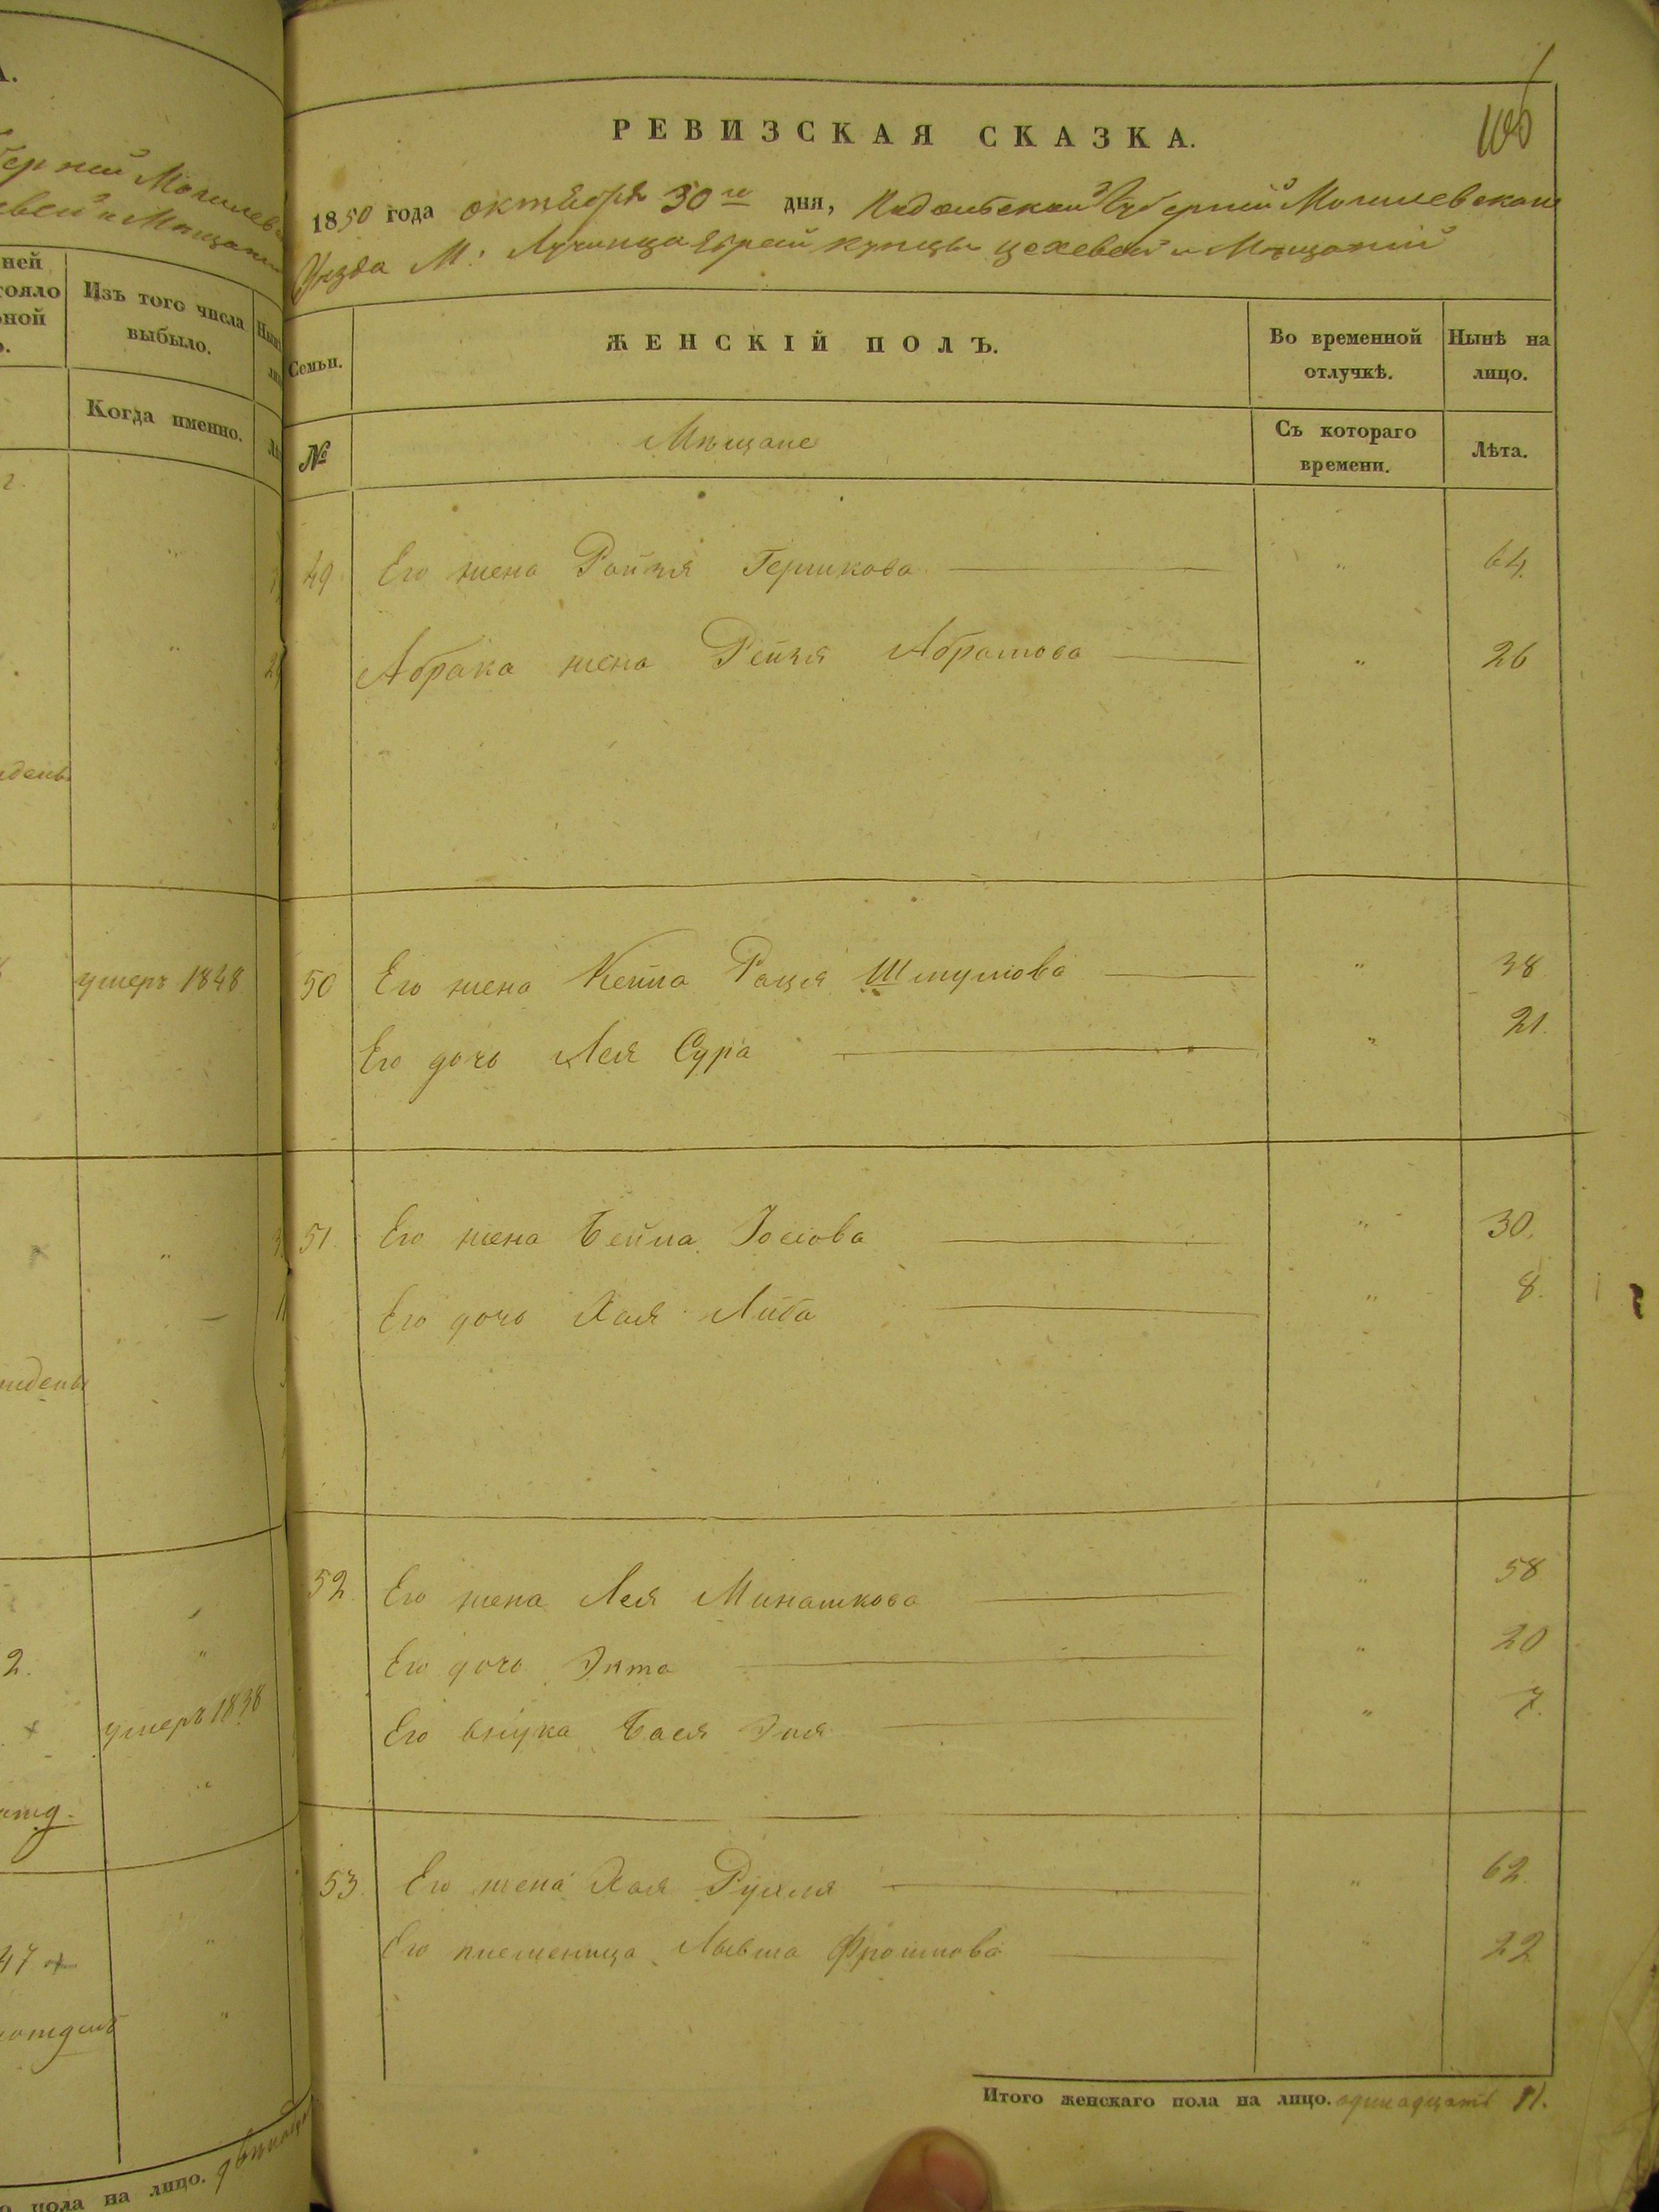 РЕВИЗСКАЯ СКАЗКА.
1850 года октября 30го дня, Подольской Губерніи Могилевскаго
Уезда М: Лучинца Еврей купцы цеховей и Мещаній
Семьи.
ЖЕНСКІЙ ПОЛЪ.
Во временной отлучкѣ.
Нынѣ на лицо.
№
Мещане
Съ котораго времени.
Лѣта.
49 Его жена Ройзя Гершкова " 64.
Абрама жена Рейзя Абрамова " 26
50 Его жена Кейла Рация Шмулова " 38
Его дочь Лея Сура " 21.
51. Его жена Бейла Іосіова " 30.
Его дочь Хая Либа " 8.
52. Его жена Лея Минашкова " 58
Его дочь Энта " 20
Его внука Бася Эля " 7.
53. Его жена Хая Рухля " 62.
Его племеница Фроимова " 22
Итого женскаго пола на лицо. одинадцать 11.
Изъ того числа выбыло.
Когда именно.
умеръ 1848
умеръ 1838
пола на лицо.